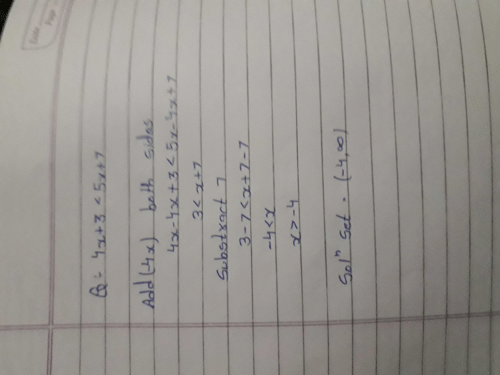 Date
Page
Q:- 4x+3 < 5x+7
Add (-4x) both sides
4x-4x+3 < 5x-4x+7
3 < x+7
Substract 7
3-7 < x+7-7
-4 < x
x > -4
Solⁿ Set · (-4, ∞)